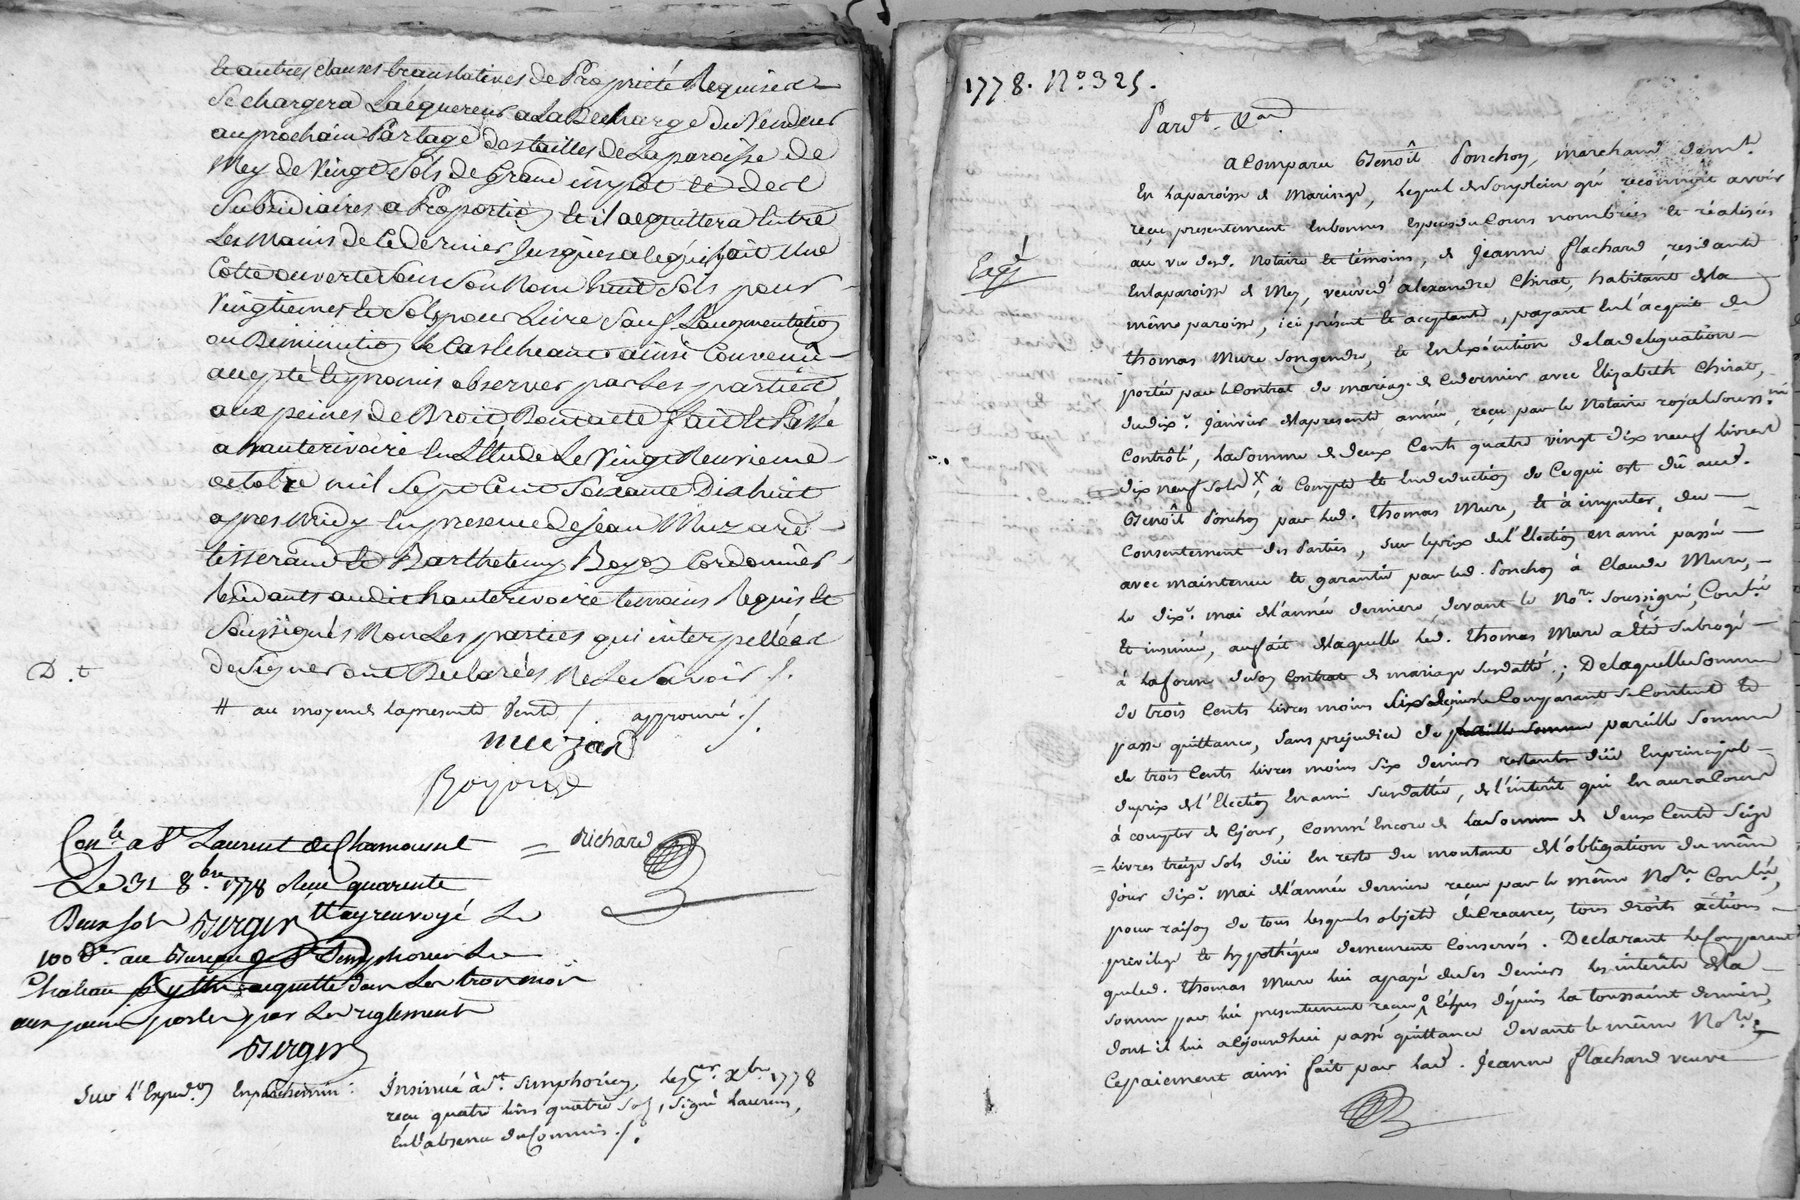 et autres clauses translatives de Propriété Requises
Se chargera Lacquereur a La Decharge du Vendeur
au prochain Partage des tailles de La paroisse de
Mey de Vingt Sols de Grand impot et des
Subsidiaires a Proportion et il acquittera Entre
Les Mains de Ce dernier Jusques a ce qu'il ait Une
Cotte ouverte Sous Son Nom huit Sols pour
Vingtiemes et Sols pour Livre Sauf Laugmentation
ou Diminution Le Cas Echeant ainsi Convenu
accepté et promis observer par Les parties
aux peines de Droit Dont acte fait et Passé
a hauterivoire En L'Etude Le Vingt Neuvieme
octobre mil Sept Cent Soixante Dix huit
apres Midy En presence de Jean Muzard
tisserand et Barthelemy Boyon Cordonnier
Residants audit hauterivoire temoins Requis et
Soussignés Non Les parties qui interpellées
de Signer ont Declarées Ne Le Savoir /.
D.t
# au moyen de la presente Vente /. approuvé /.
muzard
Boyond
Richard
Con.lé a St Laurent de Chamousset
Le 31 8.bre 1778 Reçu quarente
Deux sols Berger Et ay renvoyé Le
100 D.er au Bureau de St Simphorien Le
Chateau pour y etre acquitté dans Les trois mois
aux peines portées par Les reglements
Berger
Sur l'Exped.on En parchemin : Insinué à S.t Simphorien, les 1er Xbre 1778
reçu quatre livres quatre sols, Signé Laurens,
En l'absence du Commis /.
1778. N.o 325.
Pard.t &a.
a Comparu Benoît Ponchon, marchand dem.t
En la paroisse de Maringe, lequel de Son plein gré reconnoit avoir
reçu presentement En bonnes Especes du Cours nombrées et réalisées
au vu desd. Notaire et témoins, de Jeanne flachard residante
Expé
En la paroisse de Mey, veuve d'alexandre Chirat, habitant de la
même paroisse, ici présente et acceptante, payant En l'acquit de
thomas Mure Son gendre, et En Exécution de la delegation
portée par le Contrat de mariage de Ce dernier avec Elizabeth Chirat,
du dix.e Janvier de la presente année, reçu par le Notaire royal Soussigné
Contrôlé, la Somme de deux Cents quatre vingt dix neuf livres
dix neuf Sols X, à Compte et En deduction de Ce qui est dû aud.
Benoît Ponchon par led. thomas Mure, et à imputer, du
Consentement des Parties, Sur le prix de l'Election en ami passée
avec maintenue et garantie par led. Ponchon à Claude Mure,
le dix.e mai de l'année derniere devant le No.re Soussigné, Con.lé
Et insinué, au fait de laquelle led. thomas Mure a été Subrogé
à la forme de Son Contrat de mariage Susdatté ; De laquelle Somme
de trois Cents livres moins Six deniers le Comparant Se Contente et
passe quittance, Sans préjudice de pareille Somme pareille Somme
de trois Cents livres moins Six deniers restante düe En principal
du prix de l'Election En ami Susdattée, de l'intérêt qui En aura Couru
à compter de Ce jour, Comme Encore de la Somme de deux Cents Seize
= livres treize Sols düe En reste du montant de l'obligation du même
jour dix.e mai de l'année derniere reçue par le même No.re Con.lée,
pour raison de tous lesquels objets de Creance, tous droits actions
privilege et hypothéque demeurent Conservés. Declarant le Comparant
que led. thomas Mure lui a payé de Ses deniers les intérêts de la
Somme par lui presentement reçue Echus depuis la toussaint derniere,
dont il lui a Ce jourd'hui passé quittance devant le même No.re,
Ce paiement ainsi fait par lad. Jeanne flachard veuve